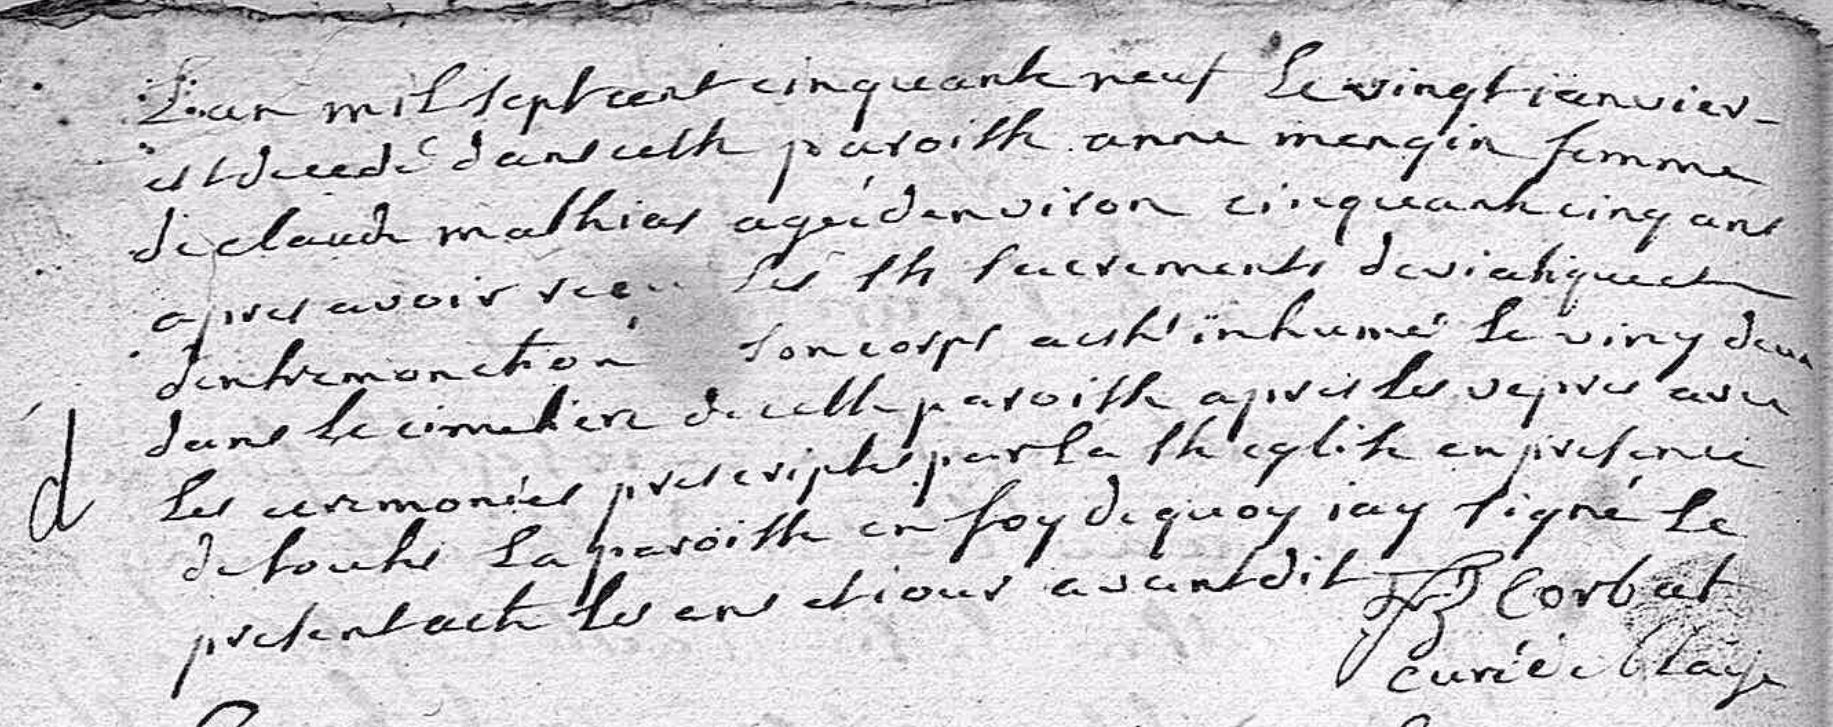 L'an mil sept cent cinquante neuf le vingt ianvier
est decedé dans cette paroisse anne mengin femme
de claude mathias ageé d'environ cinquante cinq ans
apres avoir receu les sts sacrements de viatique et
d'entremonction son corps a esté inhumé le vingt deux
dans le cimetiere de cette paroisse apres les vepres avec
les ceremonies prescriptes par la ste eglise en presence
de toute la paroisse en foy de quoy iay signé le
d
present acte les ans et iour avant dit Corbat
curé